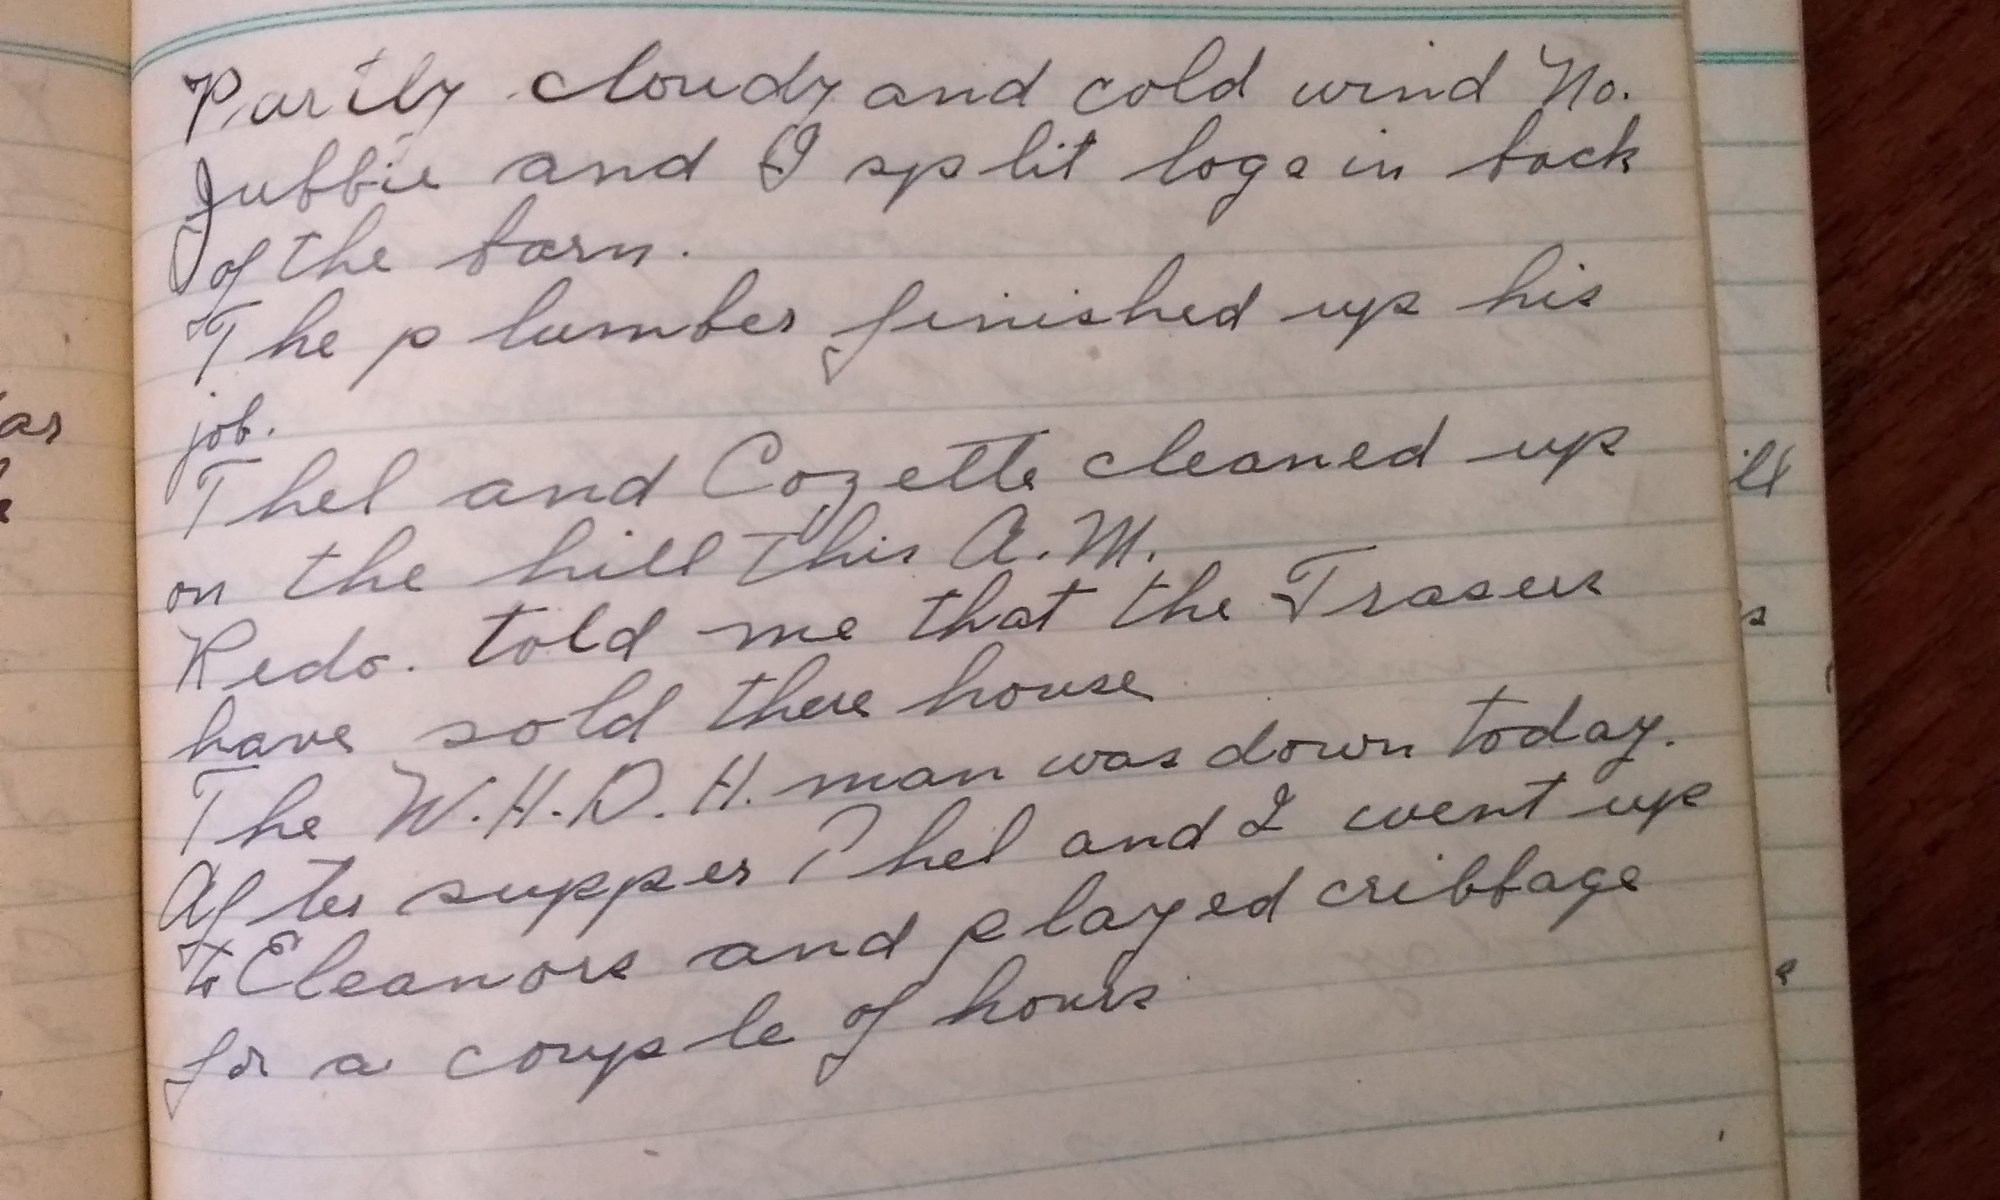 Partly cloudy and cold wind No.
Jubbie and I split logs in back
of the barn.
The plumber finished up his
job.
Thel and Cozette cleaned up
on the hill this A.M.
Redo. told me that the Frasers
have sold there house
The W.H.D.H. man was down today.
After supper Thel and I went up
to Eleanors and played cribbage
for a couple of hours